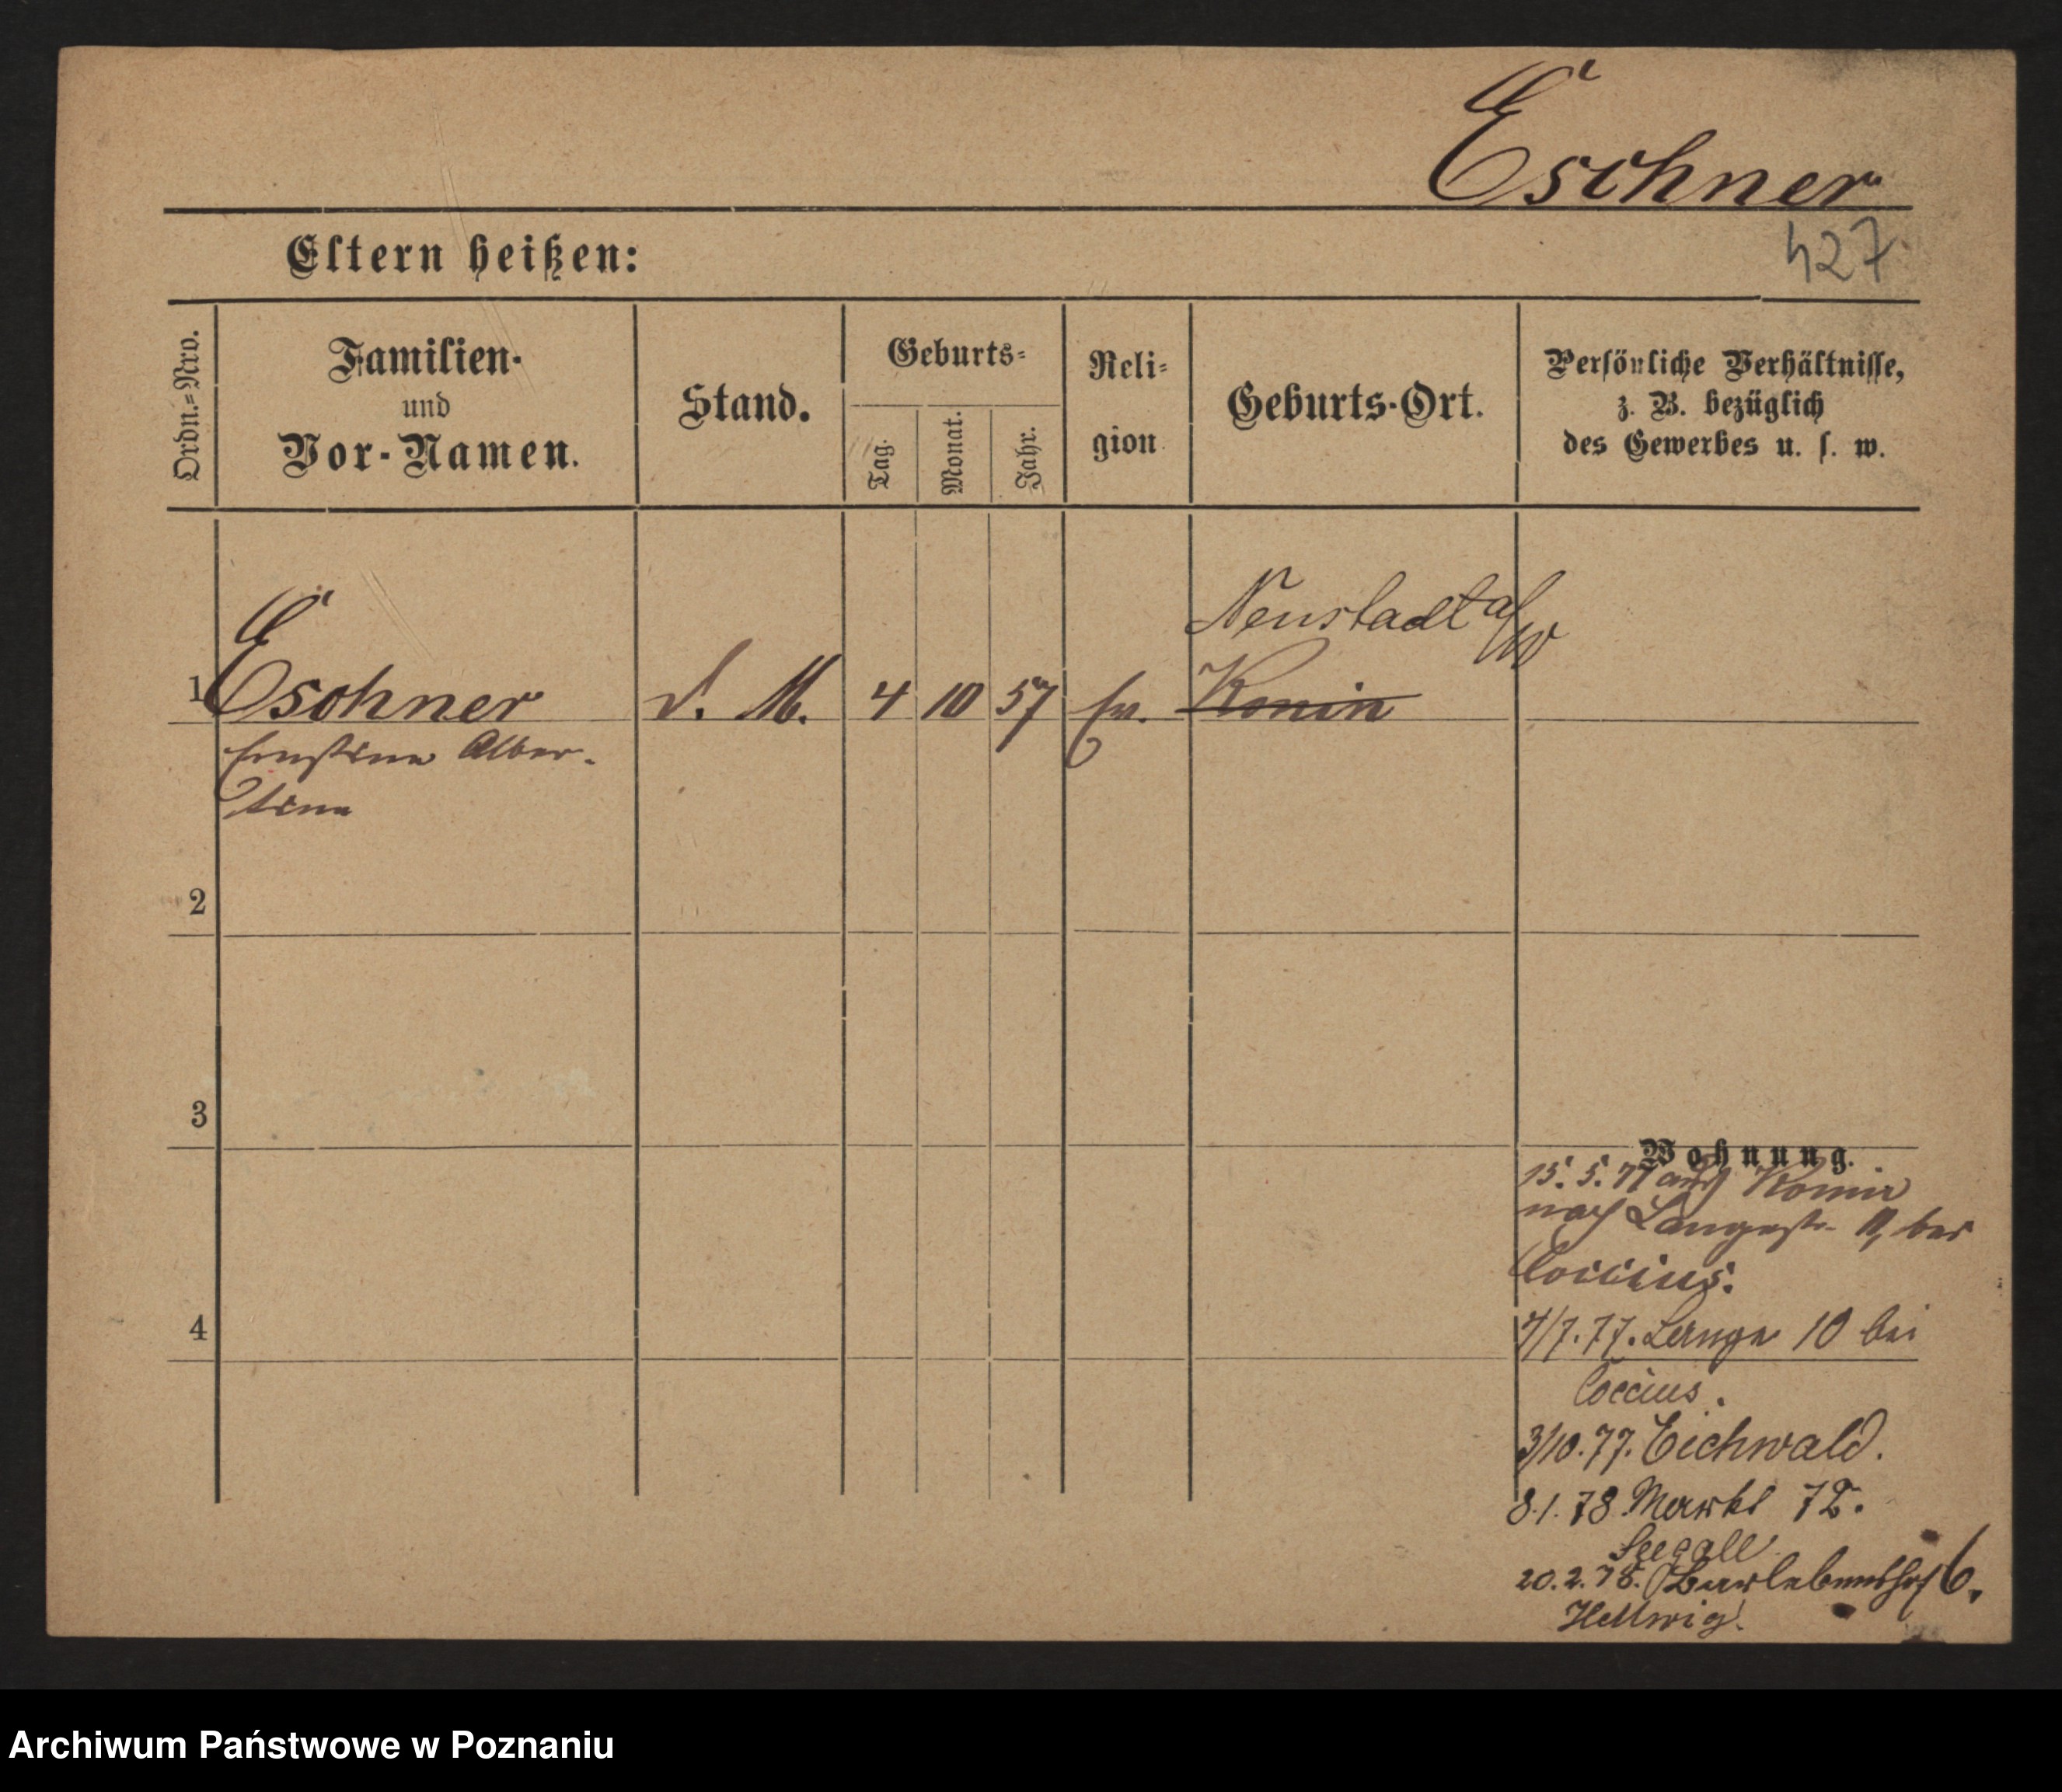 Eschner
427
Eltern heißen:
Ordn.=Nro.
Familien-
und
Vor-Namen.
Stand.
Geburts=
Tag.
Monat.
Jahr.
Reli=
gion
Geburts-Ort.
Persönliche Verhältnisse,
z. B. bezüglich
des Gewerbes u. s. w.
Neustadt a/W
1 Eschner d. M. 4 10 57 ev. Konin
Ernstine Alber-
tine
2
3
Wohnung.
15.5.77 aus Konin
nach Langestr. 11, bei
Coccius.
4
7/7.77. Lange 10 bei
Coccius.
3/10.77. Eichwald.
8.1.78 Markt 72.
Seegall
20.2.78. 6.
Hellwig.
Archiwum Państwowe w Poznaniu